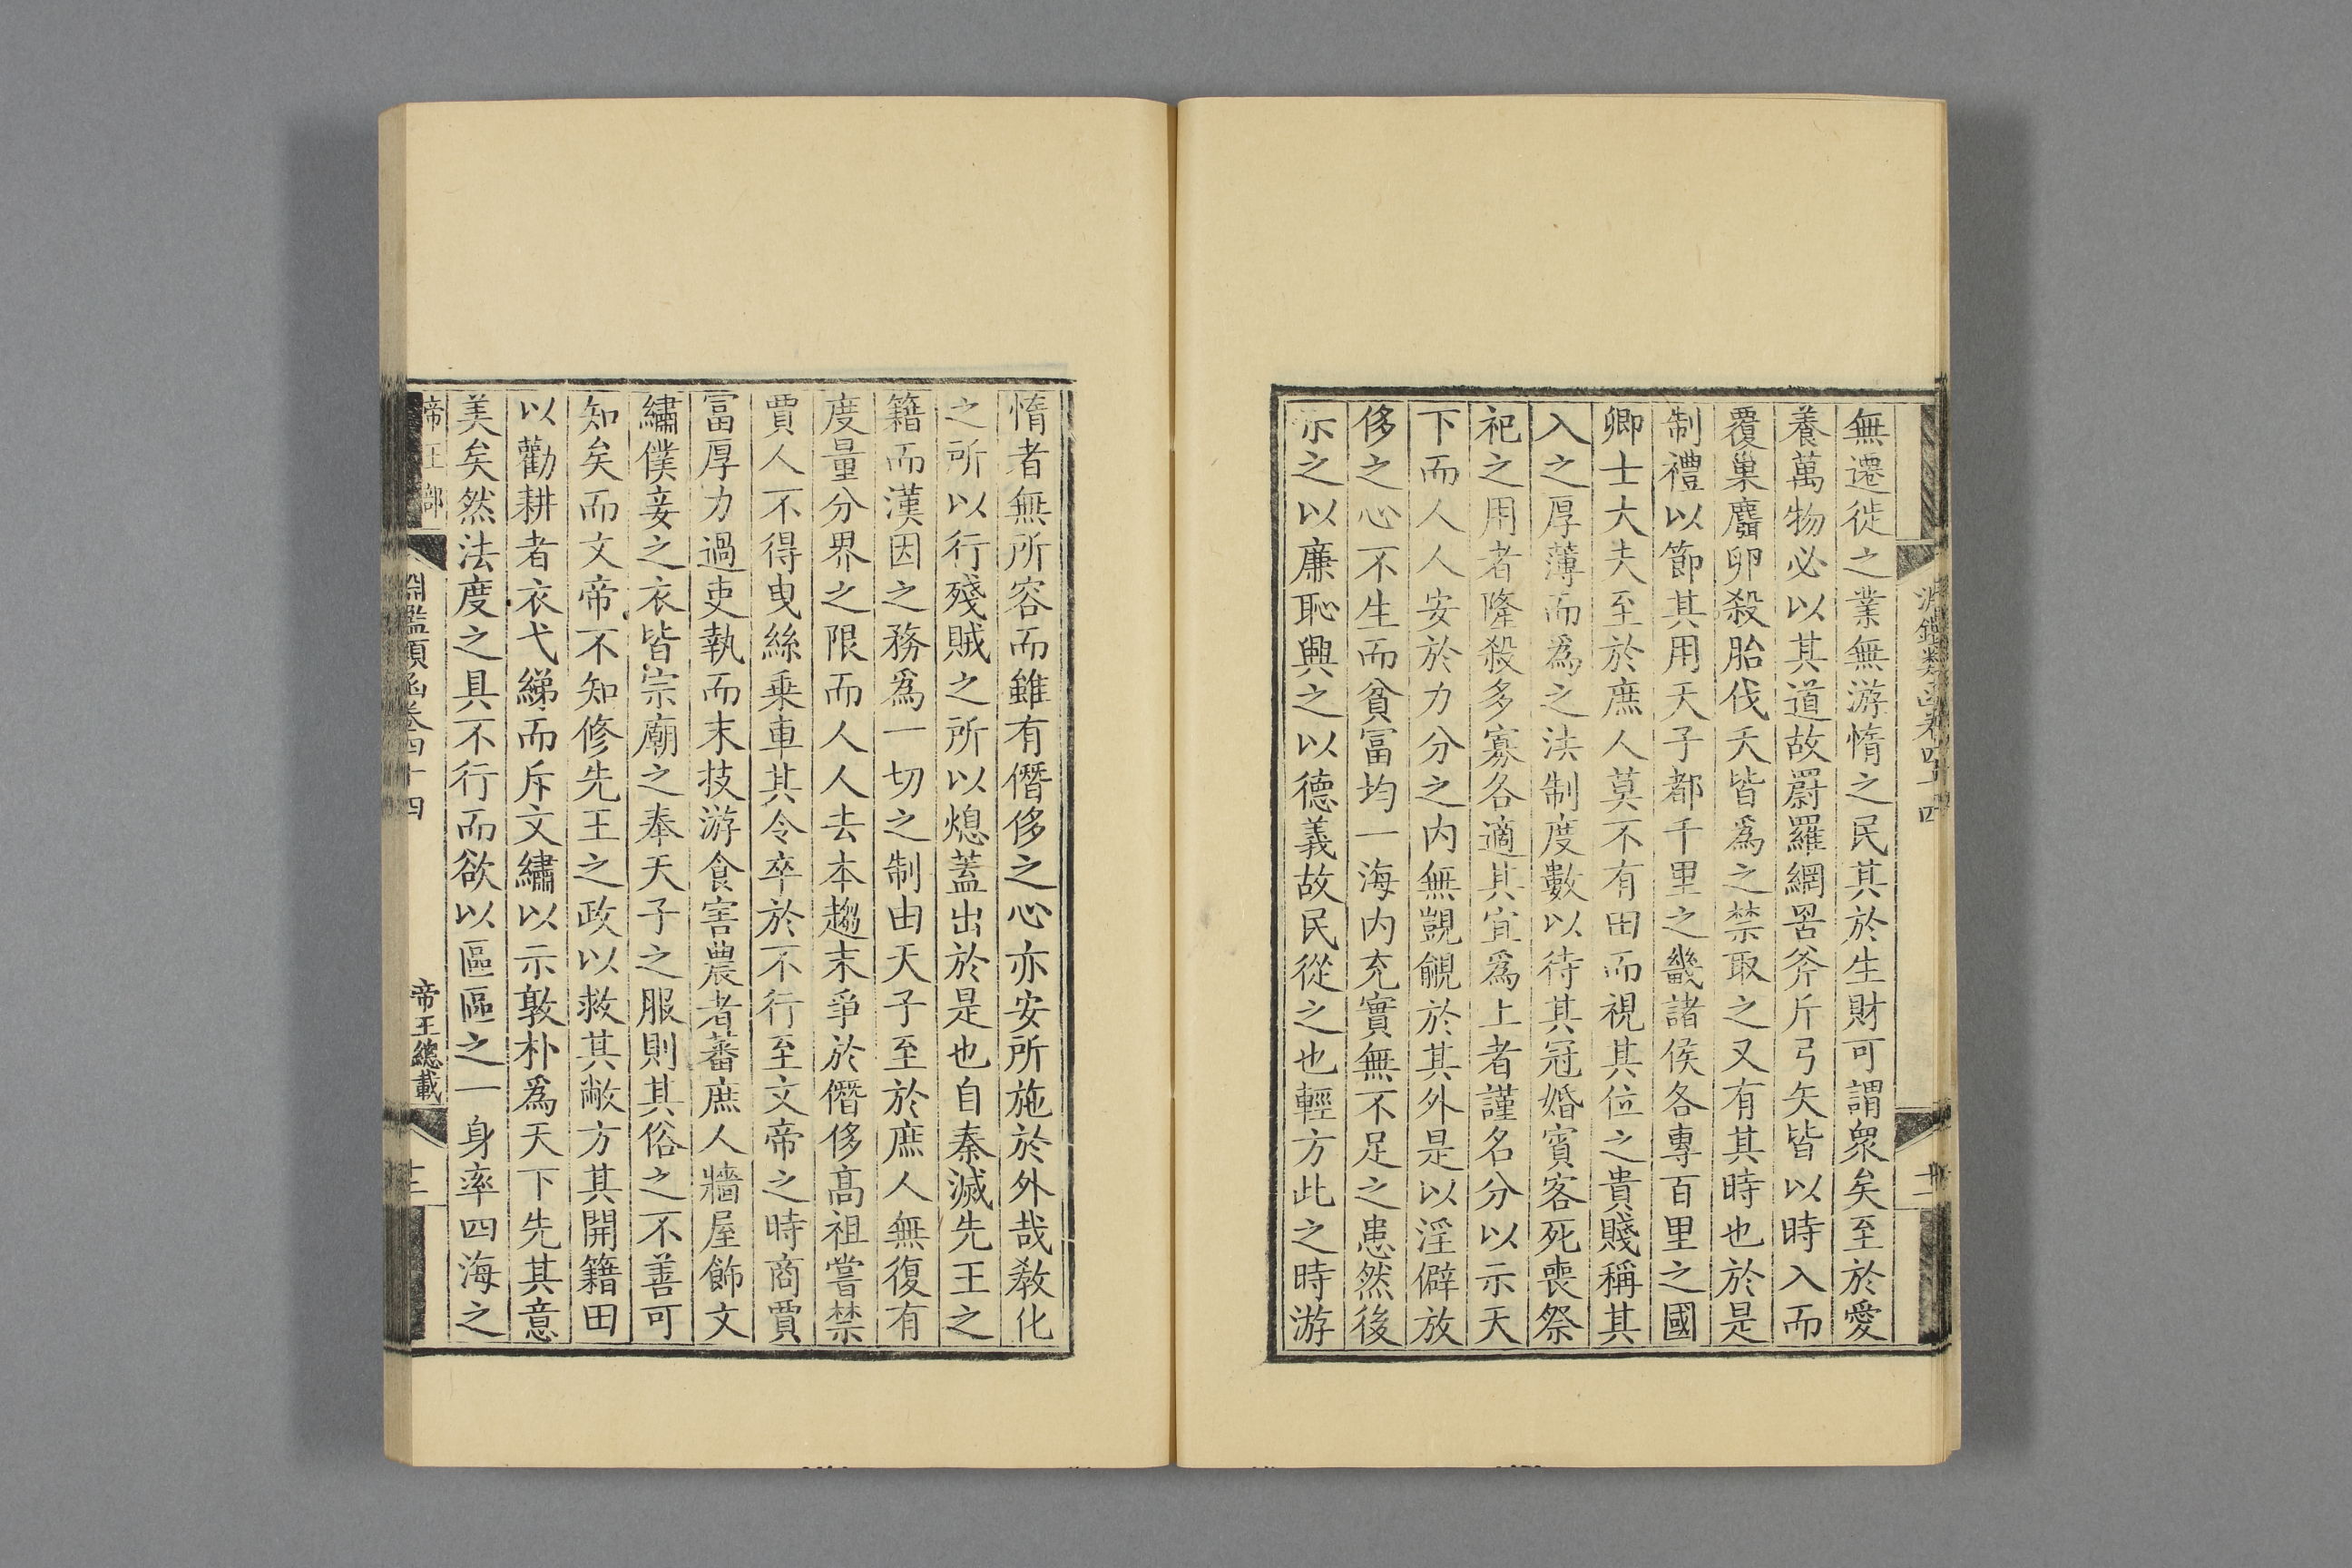 淵鑑類函卷四十四
十二
無遷徙之業無游惰之民其於生財可謂衆矣至於愛
養萬物必以其道故罻羅網罟斧斤弓矢皆以時入而
覆巢麛卵殺胎伐夭皆爲之禁取之又有其時也於是
制禮以節其用天子都千里之畿諸侯各專百里之國
卿士大夫至於庶人莫不有田而視其位之貴賤稱其
入之厚薄而爲之法制度數以待其冠婚賓客死喪祭
祀之用者隆殺多寡各適其宜爲上者謹名分以示天
下而人人安於力分之内無覬覦於其外是以淫僻放
侈之心不生而貧富均一海内充實無不足之患然後
示之以廉恥興之以德義故民從之也輕方此之時游
惰者無所容而雖有僭侈之心亦安所施於外哉敎化
之所以行殘賊之所以熄蓋出於是也自秦滅先王之
籍而漢因之務爲一切之制由天子至於庶人無復有
度量分界之限而人人去本趨末爭於僭侈高祖嘗禁
賈人不得曳絲乘車其令卒於不行至文帝之時商賈
富厚力過吏埶而末技游食害農者蕃庶人牆屋飾文
繡僕妾之衣皆宗廟之奉天子之服則其俗之不善可
知矣而文帝不知修先王之政以救其敝方其開籍田
以勸耕者衣弋綈而斥文繡以示敦朴爲天下先其意
美矣然法度之具不行而欲以區區之一身率四海之
帝王部
淵鑑類函卷四十四
帝王總載